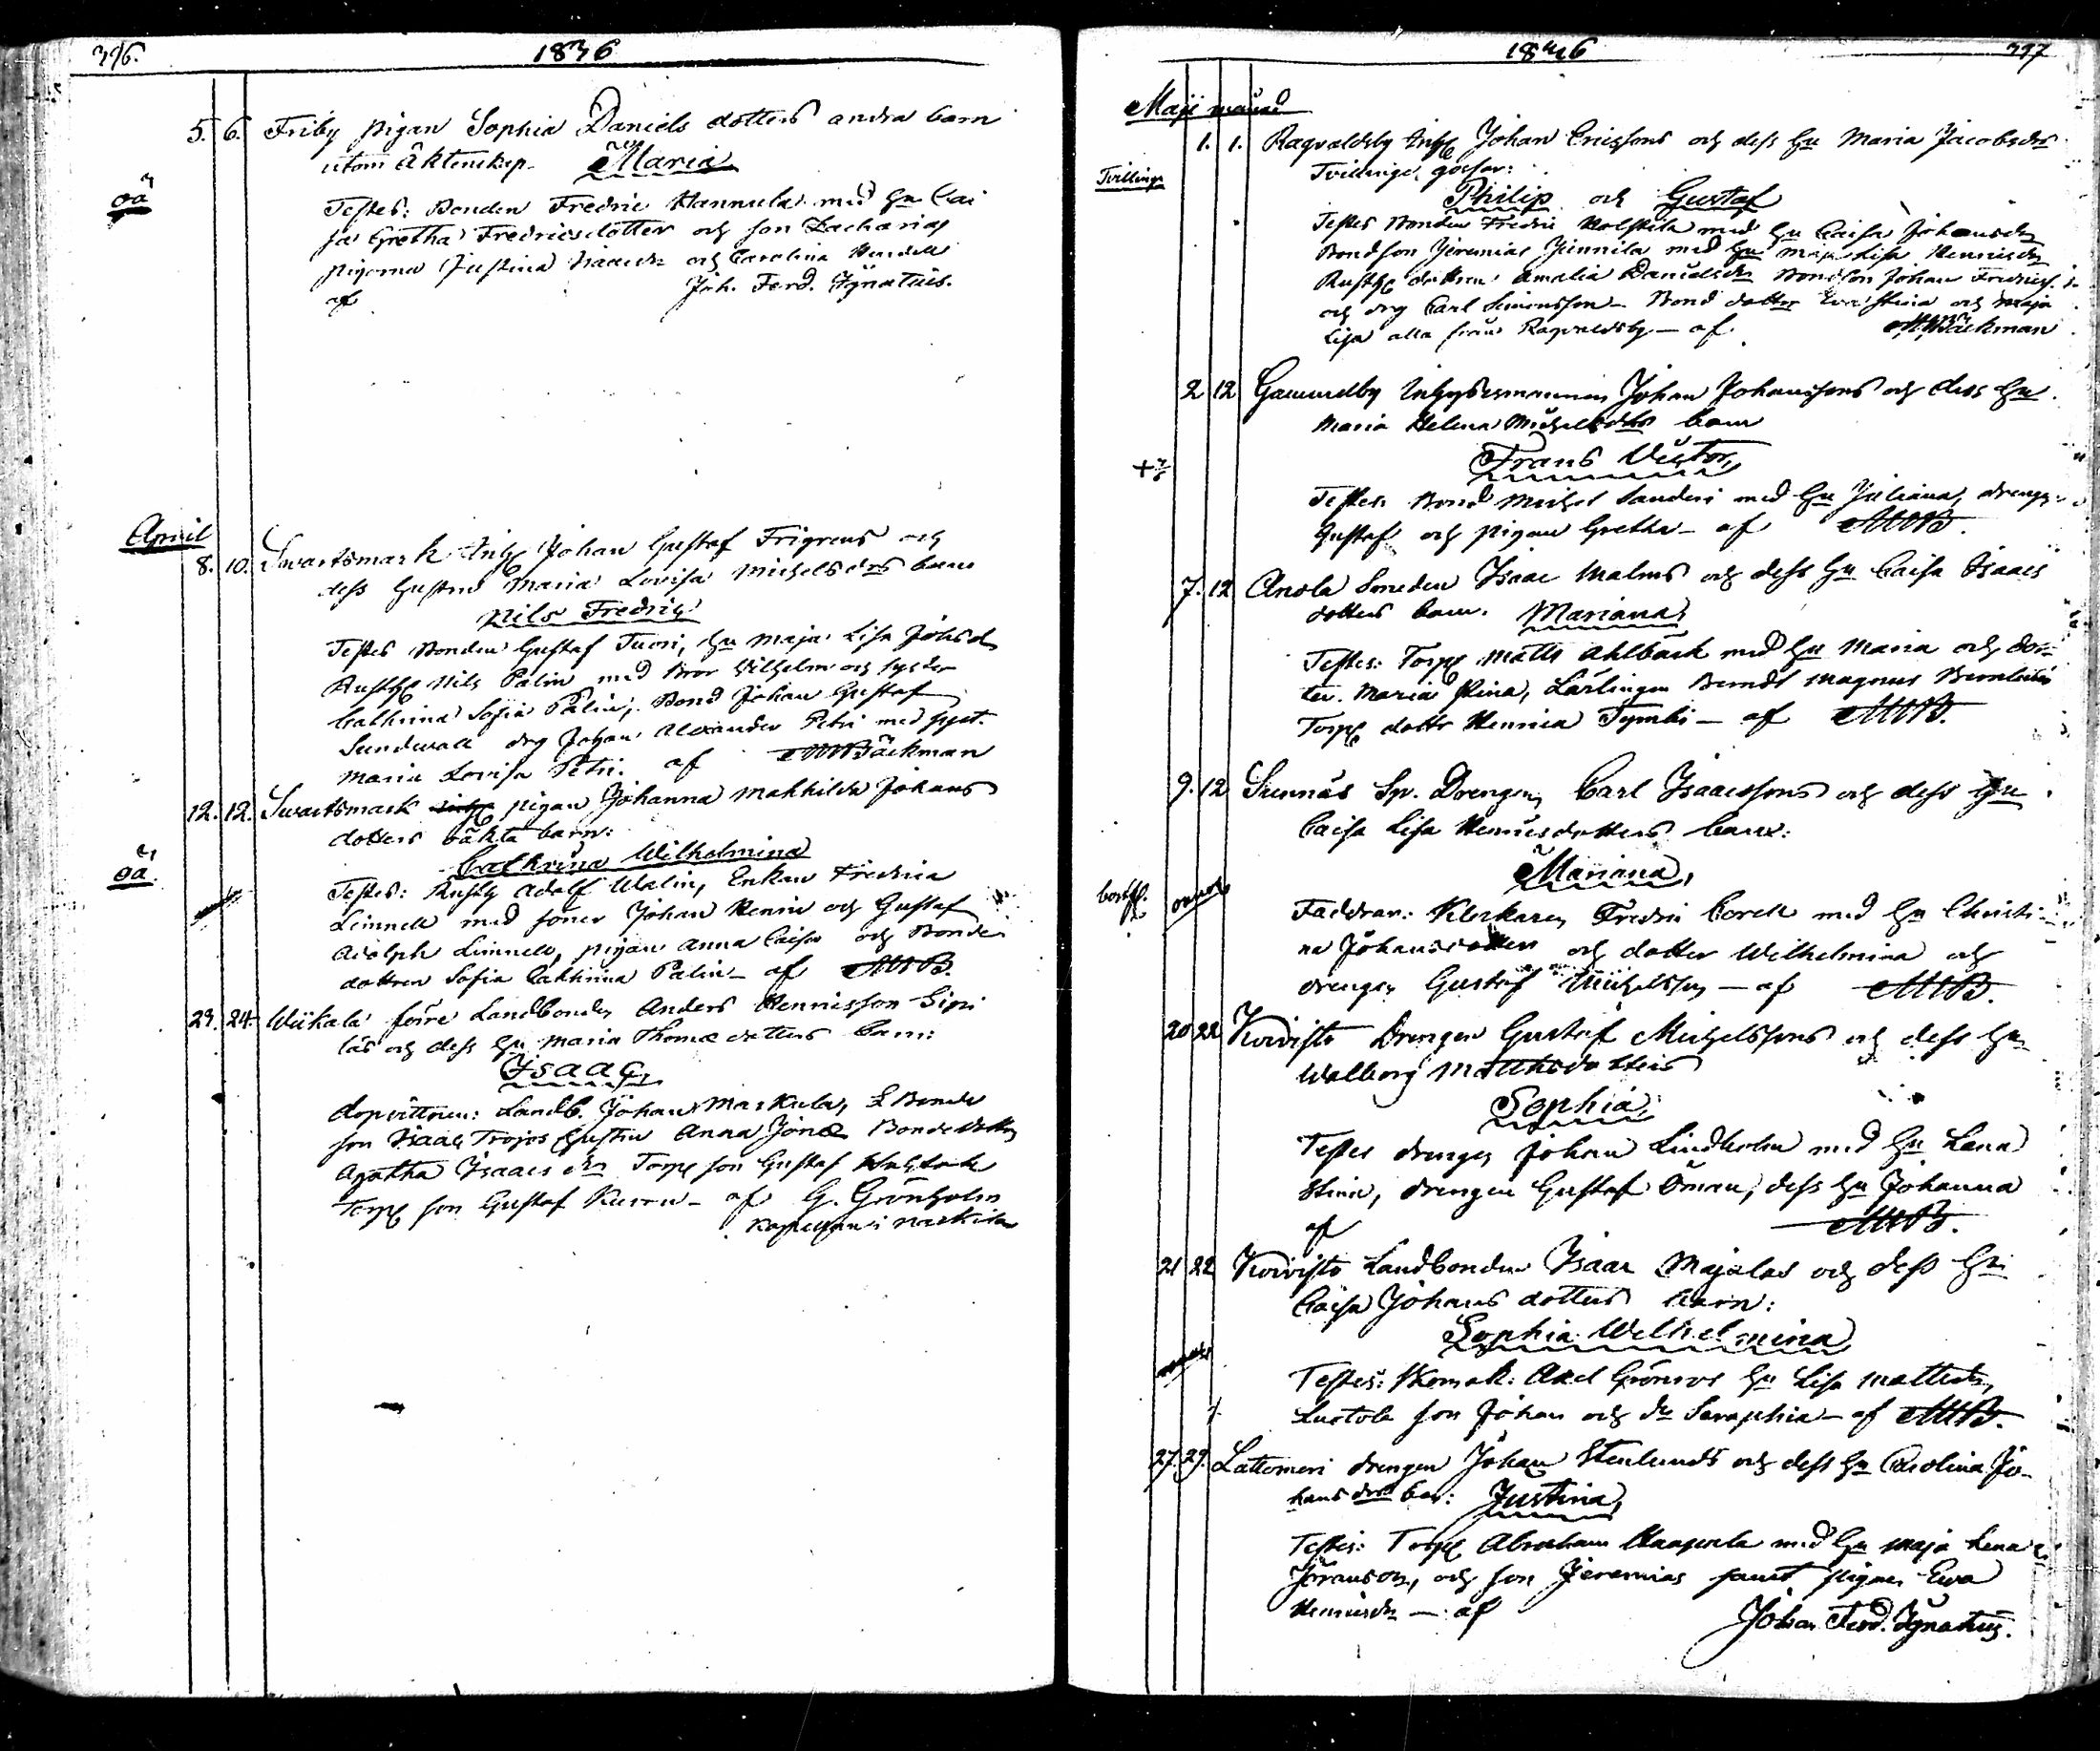 396.
1836
5. 6. Friby pigan Sophia Daniels dotters andra barn
utom äktenskap. Maria
oä
Testes: Bonden Fredric Hannula med hu Cai
sa Gretha Fredricsdotter och son Zacharias
pigorna Justina Isaacsdr och Carolina Hendell
af Joh. Ferd. Ignatius.
April
8. 10. Swartsmark Inh Johan Gustaf Frigrens och
dess hustru Maria Lovisa Michelsdrs barn
Nils Fredric
Testes Bonden Gustaf Tuori, hu Maja Lisa Johsdr
Rusth Nils Palin med bror Wilhelm och syster
Cathrina Sofia Palin, Bond Johan Gustaf
Sundwall drg Johan Alexander Petri med syst.
Maria Lovisa Petri. af MWBäckman
12. 12. Swartsmark pigan Johanna Mathilda Johans
dotters oäkta barn:
oä.
Cathrina Wilhelmina
Testes: Rusth Adolf Walin, Enkan Fredrica
Limnell med söner Johan Henric och Gustaf
Adolph Limnell, pigan Anna Caisa och Bonde
dottren Sofia Cathrina Palin - af MWB.
23. 24. Wiikala förre Landbonden Anders Hennisson Sipi
läs och dess hu Maria Thomæ dotters barn:
Isaac,
dopvittnen: Landb. Johan Maskula, L Bonde
son Isaac Trojos hustru Anna Jonæ Bondedottr
Agatha Isaacs dr Torp son Gustaf
Torp son Gustaf - af G. Grönholm
Kapellan i Naskila
1836
397
Maji månad
1. 1. Ragvaldsby Inh Johan Ericssons och dess hu Maria Jacobsdrs
Tvillinge gossar:
Tvillingr
Philip och Gustaf
Testes Bonden Fredric med hu Caisa Johansdr
Bondson Jeremias Jinnilä med hu Maja Lisa Hennicsdr
Rusth dottren Amalia Danielsdr Bondson Johan Fredricss.
och drg Carl Simonsson - Bond dotter Eva Stina och Maja
Lisa alla från Ragvaldsby - af MWBäckman
2 12 Gammelby Inhysesmannen Johan Johanssons och dess hu
Maria Helena Michelsdrs barn
Frans Victor,
Testes Bond Michel Sanderi med hu Juliana, dreng
Gustaf och pigan Gretha - af MWB.
7. 12 Anola Smeden Isaac Malms och dess hu Caisa Isaacs
dotters barn. Mariana,
Testes: Torp Matts Ahlbäck med hu Maria och dot-
ter Maria Stina, Lärlingen Berndt Magnus
Torp dottr Henrica Tymki - af MWB.
9. 12 Sunnäs Sp. Drengen Carl Isaacssons och dess hu
Caisa Lisa Hennicsdotters barn:
Mariana,
Faddrar: Klockaren Fredric Corell med hu Christi-
na Johansdotter och dotter Wilhelmina och
drengen Gustaf Michelsson - af MWB.
20 22 Koivisto Drengen Gustaf Michelssons och dess hu
Walborg Matthsdotters
Sophia,
Testes drengen Johan Lindholm med hu Lena
Stina, drengen Gustaf Öman, dess hu Johanna
af MWB.
21 22 Koivisto Landbonden Isaac Majalas och dess hu
Caisa Johans dotters barn:
Sophia Wilhelmina
Testes: Skomak: Axel Grönroos hu Lisa Mattsdr,
son Johan och dr Seraphia - af MWB.
27. 29. Lattomeri drengen Johan Stenlunds och dess hu Carolina Jo-
hans drs bar: Justina,
Testes: Torp Abraham med hu Maja Lena
Johansdr, och son Jeremias samt pigan Eva
Hennicsdr - af Johan Ferd. Ignatius.